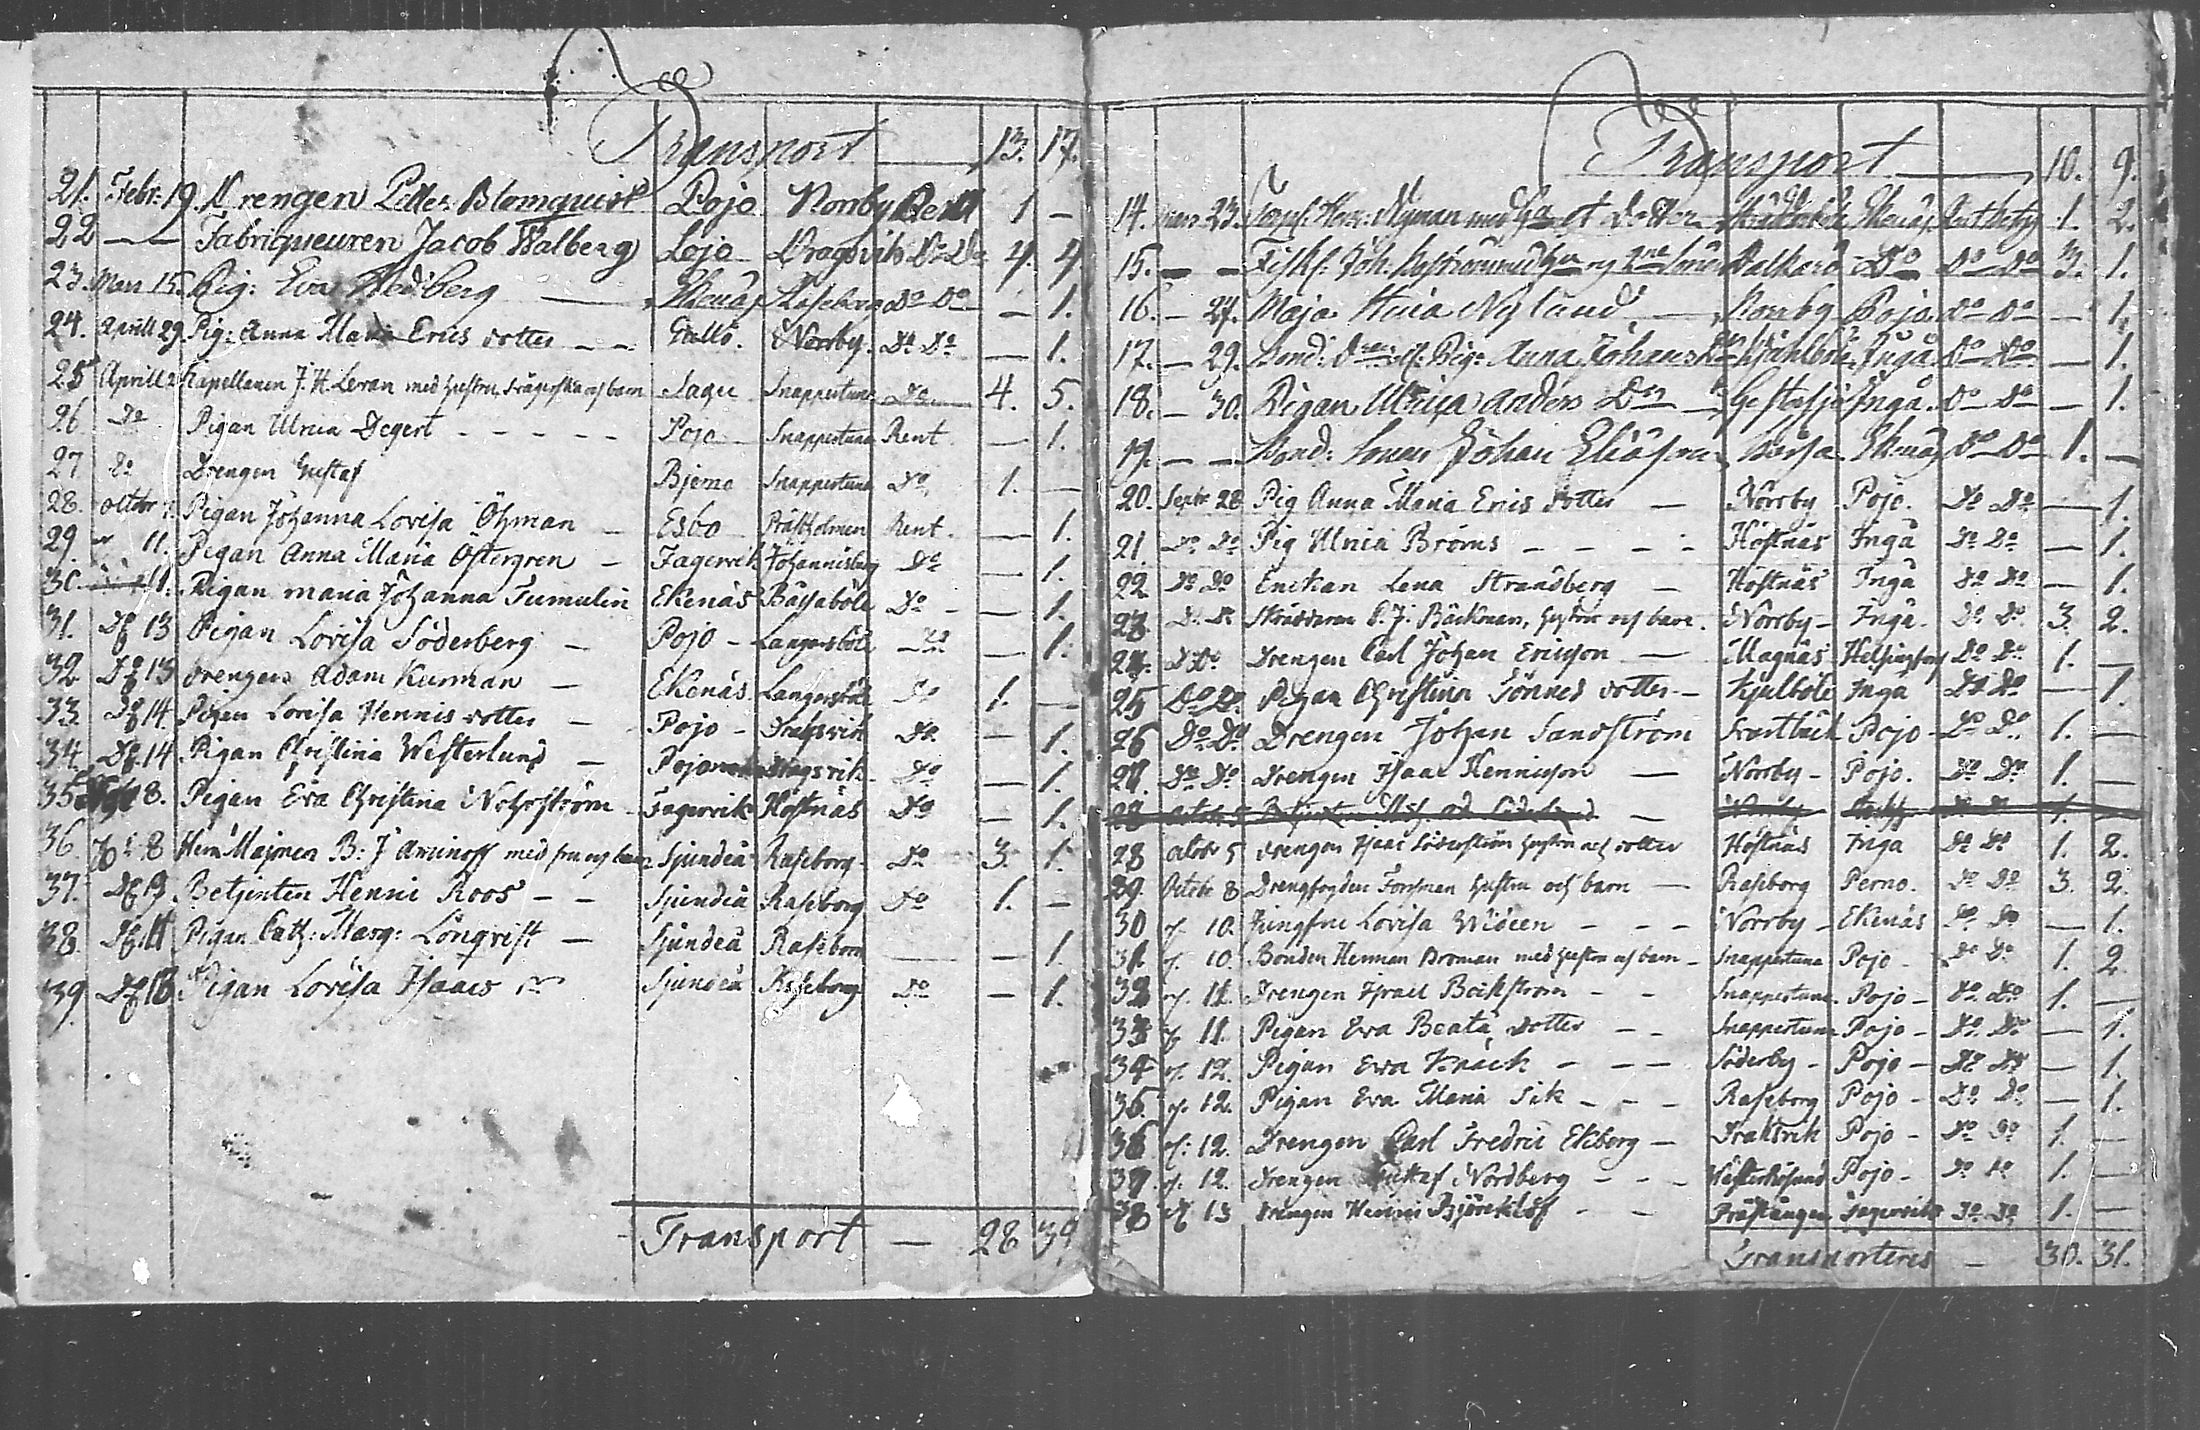 Transport — 13. 17.
21. Febr: 19. Drengen Petter Blomquist Pojo Norrby Rent 1 -
22 — Fabriqueuren Jacob Walberg Lojo Dragsvik Do Do 4. 4.
23. Mars 15. Pig: Eva Hedberg — Ekenäs Raseborg Do Do — 1.
24. Aprill 29 Pig: Anna Maria Erics dotter — Norrby. Do Do — 1.
25 Aprill Kapellanen J. H. Leran med hustru, svägerska och barn Sagu Snappertuna Do 4. 5.
26 Do Pigan Ulrica Degert - - - - - Pojo Snappertuna Rent — 1.
27 Do Drengen Gustaf Bjerno Snappertuna Do 1. —
28. octobr Pigan Johanna Lovisa Öhman — Esbo Prästholmen Rent. — 1.
29 11. Pigan Anna Maria Östergren — Fagervik Johannisberg Do — 1.
30. 11. Pigan maria Johanna Tumulin Ekenäs Båssaböle Do - — 1.
31. 13 Pigan Lovisa Söderberg — Pojo - Langansböle Do — 1.
32 13 drengen Adam Kurman — Ekenäs Langansböle Do 1. —
33. 14. Pigan Lovisa Hennis dotter — Pojo - Do — 1.
34. 14 Pigan Christina Westerlund — Pojo Dragsvik Do — 1.
35 8. Pigan Eva Christina Nohrström - Fagervik Höstnäs Do — 1.
36. 8 Herr Majoren B: J Aminoff med fru och barn Sjundeå Raseborg Do 3. 1.
37. 13 Betjenten Henric Roos - - Sjundeå Raseborg Do 1. -
38. Pigan Cath: Marg: Lönqvist — Sjundeå Raseborg — 1.
39. Pigan Lovisa Isaacs Dr Sjundeå Raseborg Do — 1.
Transport — 28 39
Transport — 10. 9.
14. Mars 23. Nyman med Ekenäs 1. 2.
15. — — Do Do Do 3. 1.
16. — 27. Maja Nylund — Norrby Pojo Do Do — 1.
17. — 29. Bond: Pig: Anna Johans Ingå Do Do — 1.
18. — 30. Pigan Ulrica Anders Dr — Ingå. Do Do — 1.
19. — — Bond: Sonen Johan Eliasson Ekenäs Do Do 1. —
20. Septbr 28 Pig Anna Maria Erics dotter — Norrby Pojo. Do Do — 1.
21. Do Do Pig Ulrica Broms - - - - Höstnäs Ingå Do Do — 1.
22 Do Do Enckan Lena Strandberg — Höstnäs Ingå Do Do — 1.
23. Do Do Skräddaren C. J. Bäckman, hustru och barn. Norrby - Ingå. Do Do 3. 2.
24. Do Do Drengen Carl Johan Ericsson — Magnäs Helsingfors Do Do 1. —
25 Do Do Pigan Christina Tönnes dotter - Kjulböle Inga Do Do — 1.
26 Do Do Drengen Johan Sandström Svartbäck Pojo Do Do 1. —
27. Do Do Drengen Isaac Hennicson — Norrby - Pojo. Do Do 1. —
28 octobr 5 drengen Isaac Söderström hustru och dotter Höstnäs Inga Do Do 1. 2.
29. Octobr 8 Drengfogden Forsman hustru och barn — Raseborg Perno. Do Do 3. 2.
30 10. Jungfru Lovisa Wideen - - - Norrby - Ekenäs Do Do — 1.
31. 10. Bonden Herman Broman med hustru och barn - Snappertuna Pojo - Do Do 1. 2.
32 11. Drengen Israel Bäckström - - Snappertuna Pojo - Do Do 1. —
33 11. Pigan Eva Beata dotter - - Snappertuna Pojo - Do Do — 1.
34 12. Pigan Eva Knäck - - - Söderby - Pojo - Do Do — 1.
35. 12. Pigan Eva Maria Sik - - - Raseborg Pojo - Do Do — 1.
36 12. Drengen Carl Fredric Ekberg — Draksvik Pojo - Do Do 1. —
37. 12. Drengen Gustaf Nordberg - - - Pojo - Do Do 1. —
38 13 Drengen Henric Björcklöf - - Prästängen Fagervik Do Do 1. —
Transporteres — 30. 31.